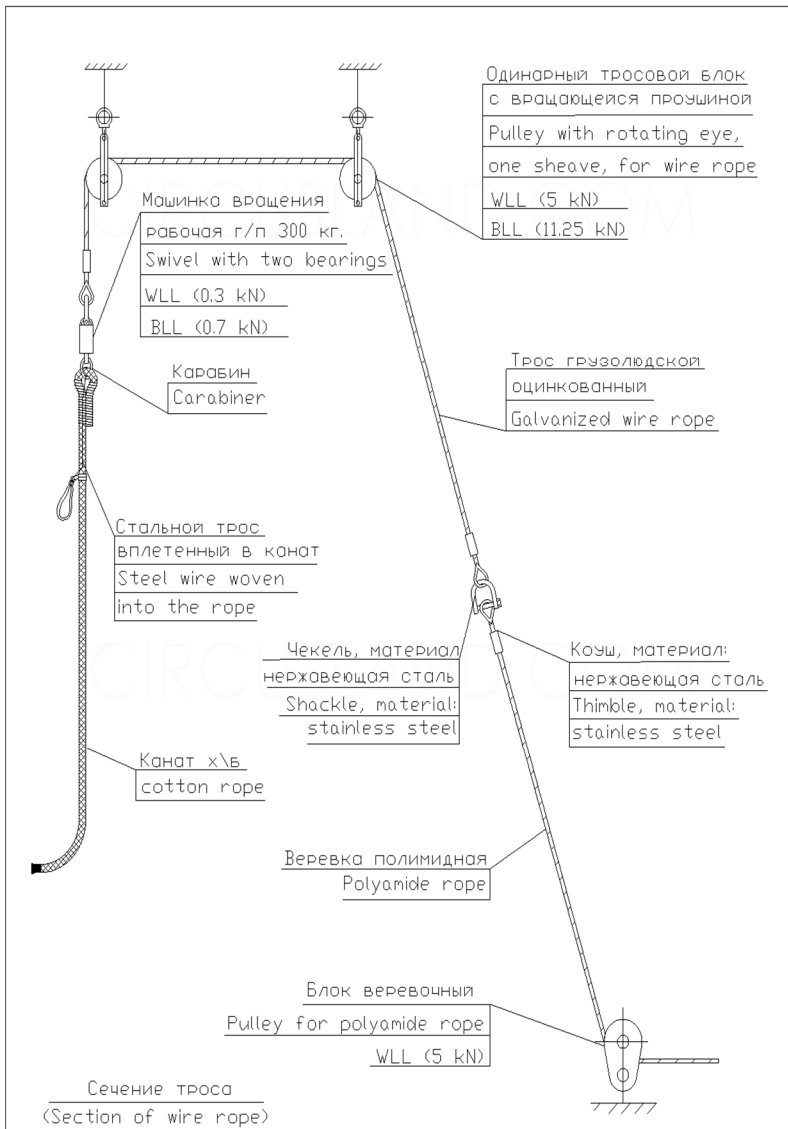 Одинарный тросовой блок
с вращающейся проушиной
Pulley with rotating eye,
one sheave, for wire rope
WLL (5 kN)
BLL (11.25 kN)
Машинка вращения
рабочая г/п 300 кг.
Swivel with two bearings
WLL (0.3 kN)
BLL (0.7 kN)
Карабин
Carabiner
Трос грузолюдской
оцинкованный
Galvanized wire rope
Стальной трос
вплетенный в канат
Steel wire woven
into the rope
Чекель, материал
нержавеющая сталь
Shackle, material:
stainless steel
Коуш, материал:
нержавеющая сталь
Thimble, material:
stainless steel
Канат х\б
cotton rope
Веревка полимидная
Polyamide rope
Блок веревочный
Pulley for polyamide rope
WLL (5 kN)
Сечение троса
(Section of wire rope)
CIRCUSLAND.COM
CIRCUSLAND.COM